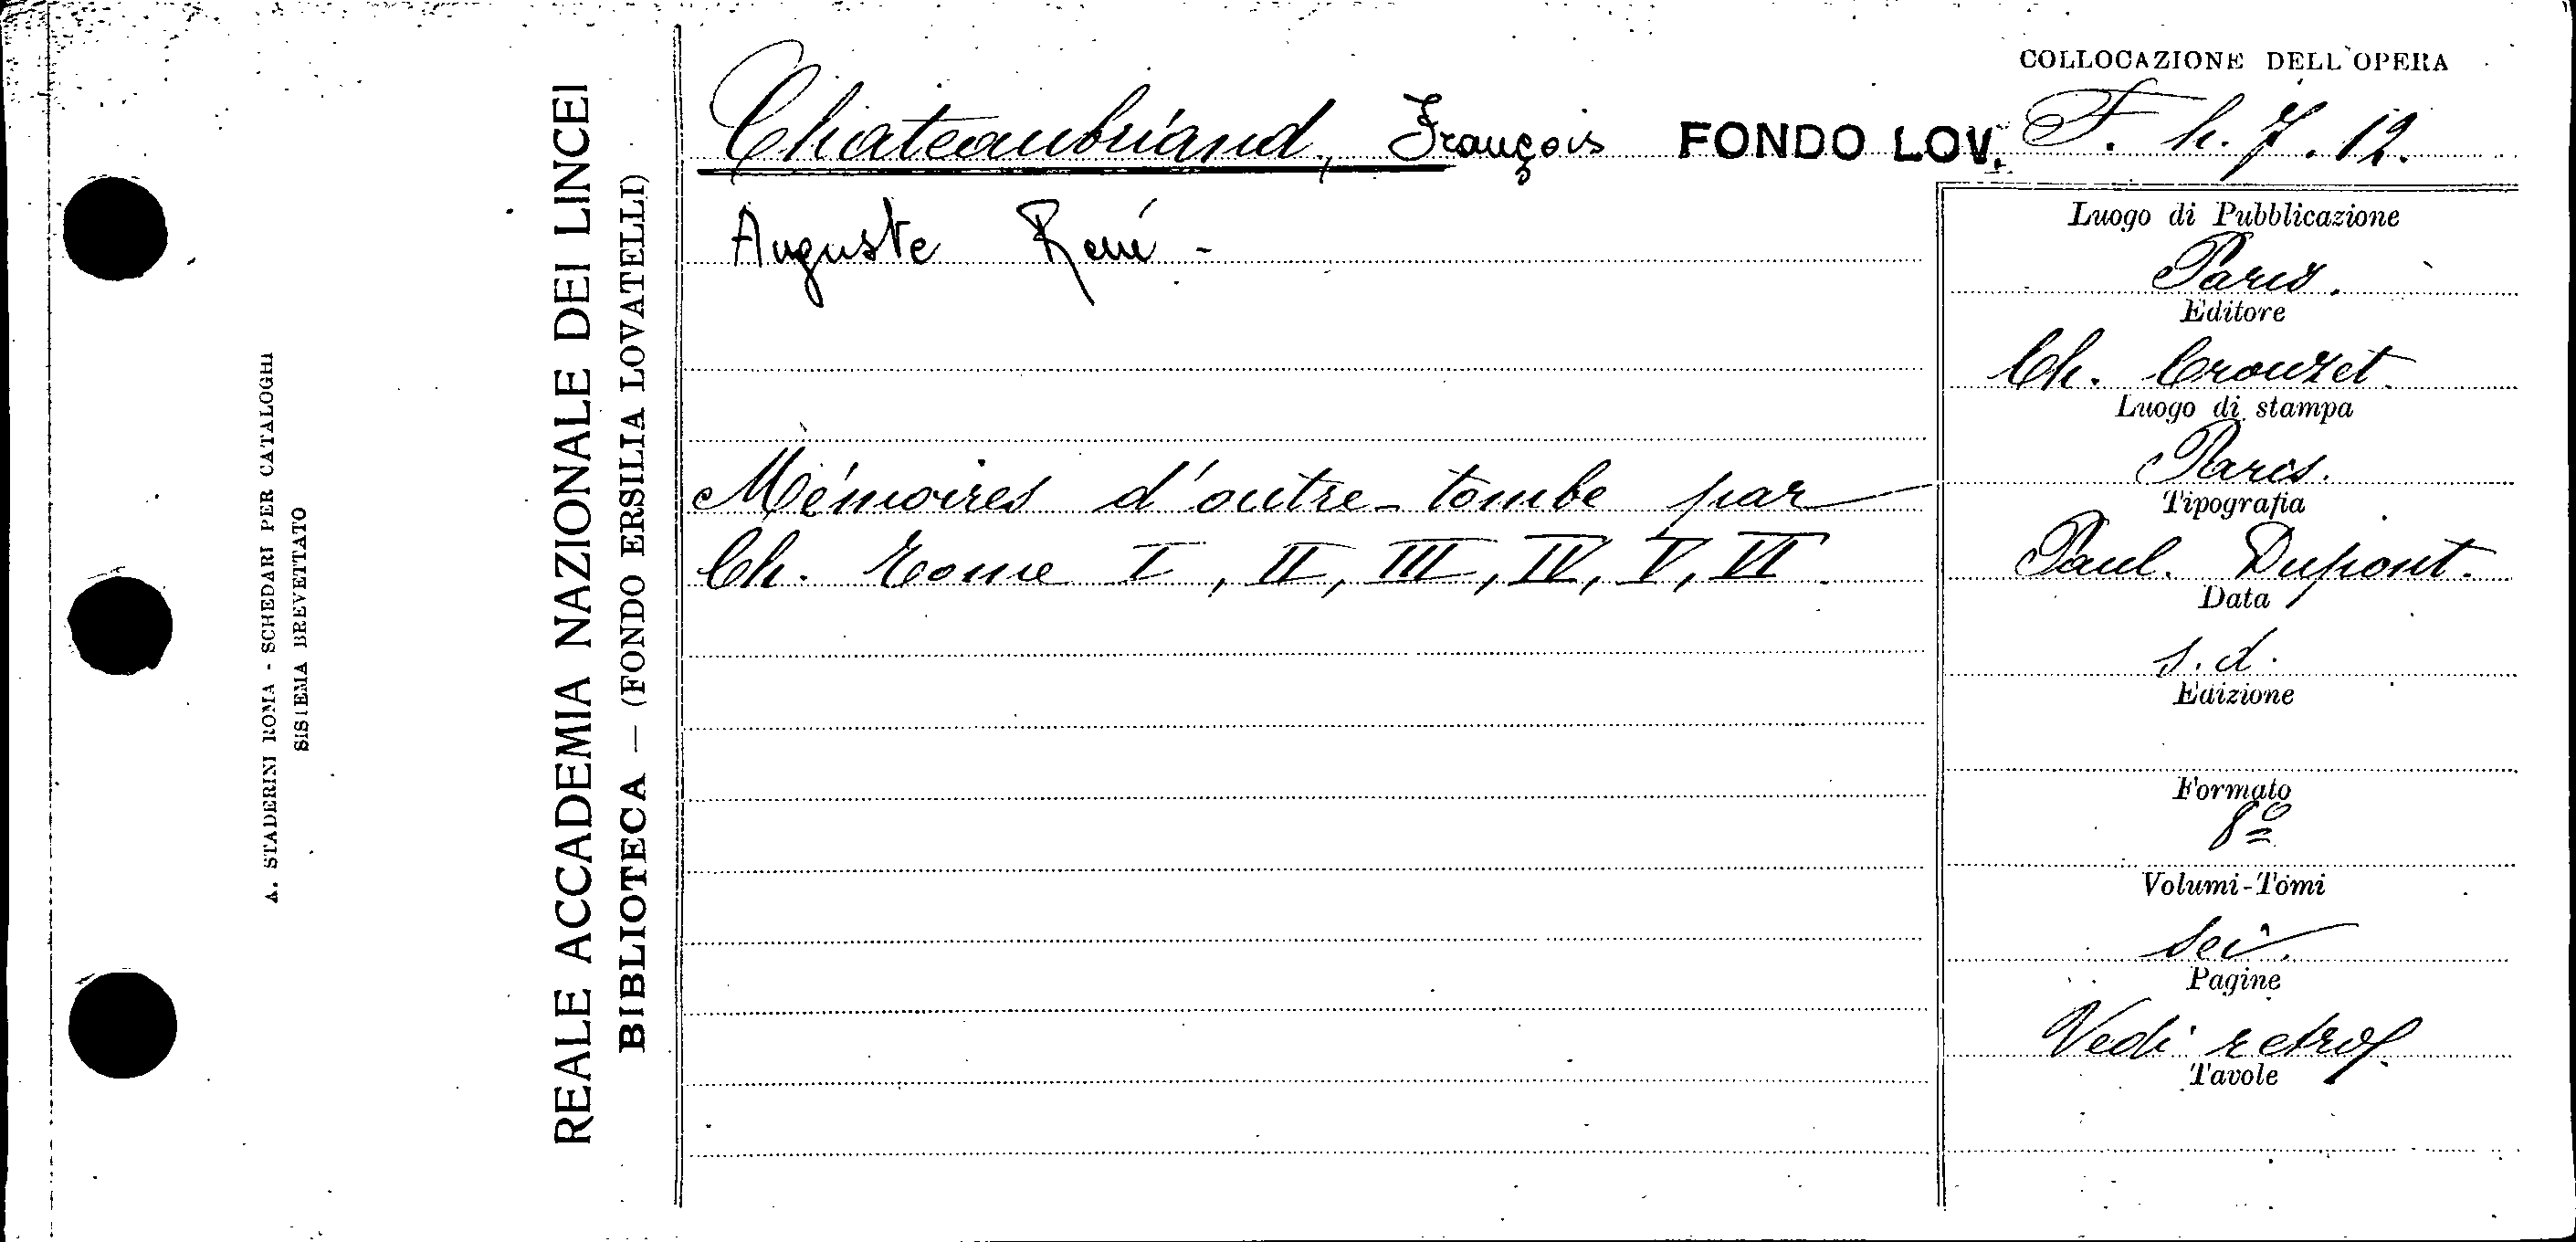 COLLOCAZIONE DELL'OPERA
Chateaubriand, François FONDO LOV. F. h. 7. 12.
Auguste René -
Mémoires d'outre-tombe par
Ch. Tome I, II, III, IV, V, VI
Luogo di Pubblicazione
Paris.
Editore
Ch. Crouzet.
Luogo di stampa
Paris.
Tipografia
Paul. Dupont.
Data
s.d.
Edizione
Formato
8º
Volumi-Tomi
Sei.
Pagine
Vedi retro
Tavole
REALE ACCADEMIA NAZIONALE DEI LINCEI
BIBLIOTECA — (FONDO ERSILIA LOVATELLI)
A. STADERINI ROMA - SCHEDARI PER CATALOGHI
SISTEMA BREVETTATO